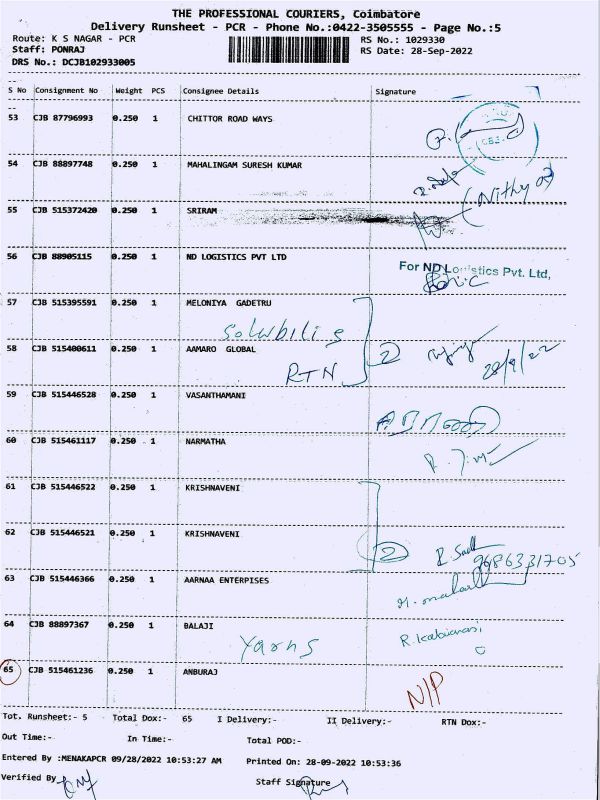 THE PROFESSIONAL COURIERS, Coimbatore
Delivery Runsheet - PCR - Phone No.:0422-3505555 - Page No.:5
Route: K S NAGAR - PCR RS No.: 1029330
Staff: PONRAJ RS Date: 28-Sep-2022
DRS No.: DCJB102933005
S No Consignment No Weight PCS Consignee Details Signature
53 CJB 87796993 0.250 1 CHITTOR ROAD WAYS
54 CJB 88897748 0.250 1 MAHALINGAM SURESH KUMAR
(Nithya
55 CJB 515372420 0.250 1 SRIRAM
56 CJB 88905115 0.250 1 ND LOGISTICS PVT LTD
For ND Logistics Pvt. Ltd,
57 CJB 515395591 0.250 1 MELONIYA GADETRU
Solubilis
58 CJB 515400611 0.250 1 AAMARO GLOBAL 2
RTN 28/9/22
59 CJB 515446528 0.250 1 VASANTHAMANI
60 CJB 515461117 0.250 1 NARMATHA
61 CJB 515446522 0.250 1 KRISHNAVENI
62 CJB 515446521 0.250 1 KRISHNAVENI 2
9686331705
63 CJB 515446366 0.250 1 AARNAA ENTERPRISES
64 CJB 88897367 0.250 1 BALAJI
Yarns
65 CJB 515461236 0.250 1 ANBURAJ
N/P
Tot. Runsheet:- 5 Total Dox:- 65 I Delivery:- II Delivery:- RTN Dox:-
Out Time:- In Time:- Total POD:-
Entered By :MENAKAPCR 09/28/2022 10:53:27 AM Printed On: 28-09-2022 10:53:36
Verified By Staff Signature